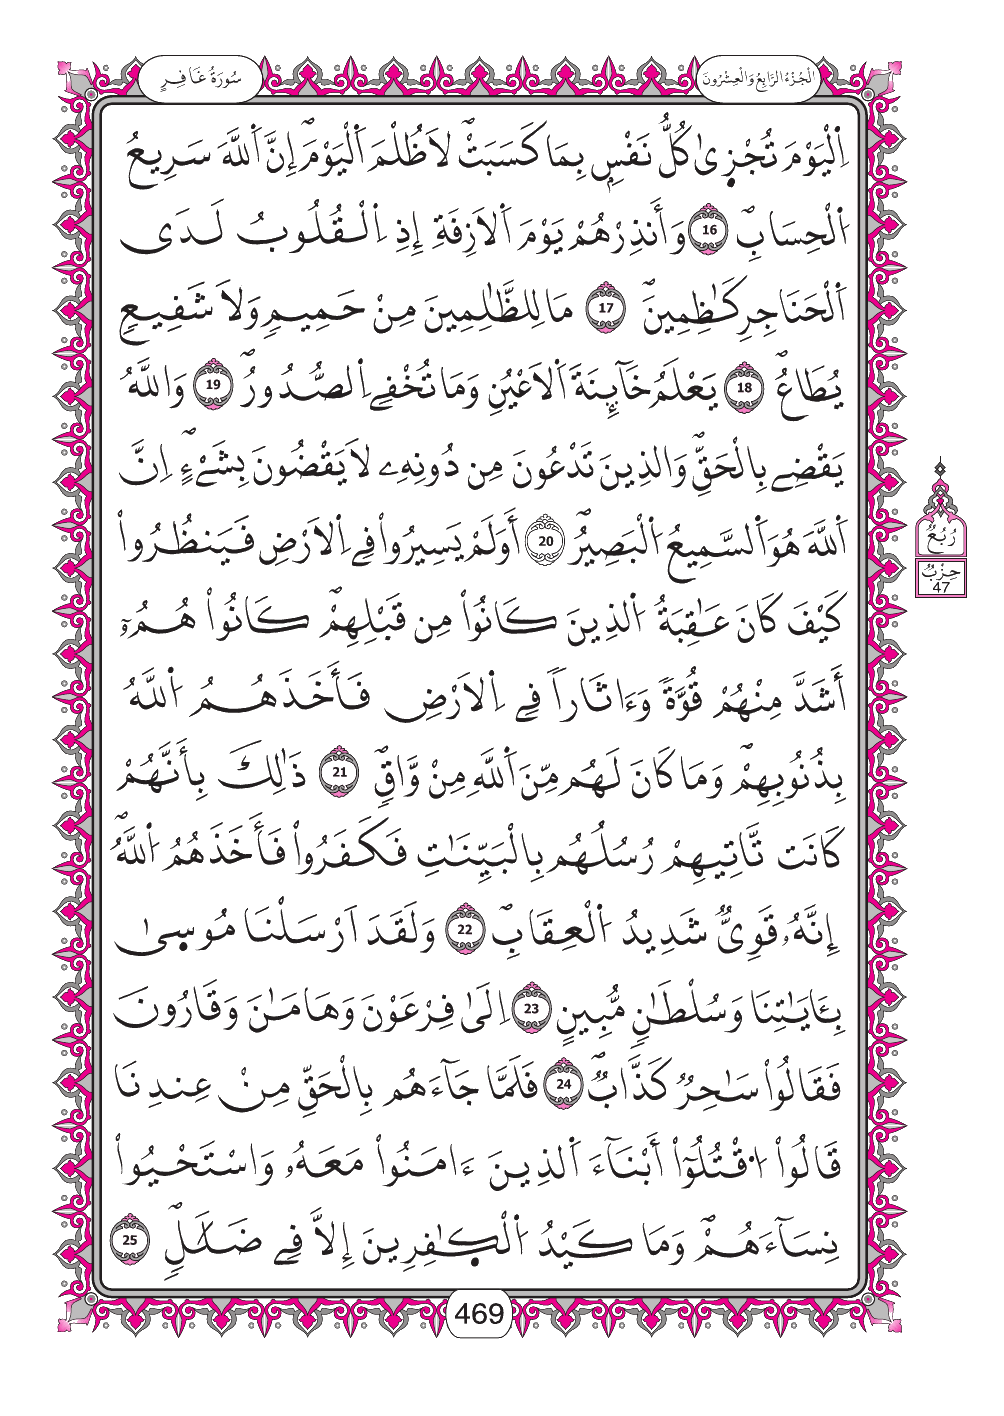 الْجُزْءُ الرَّابِعُ وَالْعِشْرُونَ
سُورَةُ غَافِرٍ
اِ۬لْيَوْمَ تُجْز۪ىٰ كُلُّ نَفْسِۢ بِمَا كَسَبَتْۖ لَا ظُلْمَ اَ۬لْيَوْمَۖ إِنَّ اَ۬للَّهَ سَرِيعُ
اُ۬لْحِسَابِۖ 16 وَأَنذِرْهُمْ يَوْمَ اَ۬لَازِفَةِ إِذِ اِ۬لْقُلُوبُ لَدَى
اَ۬لْحَنَاجِرِ كَٰظِمِينَۖ 17 مَا لِلظَّٰلِمِينَ مِنْ حَمِيمٖ وَلَا شَفِيعٖ
يُطَاعُۖ 18 يَعْلَمُ خَآئِنَةَ اَ۬لَاعْيُنِ وَمَا تُخْفِے اِ۬لصُّدُورُۖ 19 وَاللَّهُ
يَقْضِے بِالْحَقِّۖ وَالذِينَ تَدْعُونَ مِن دُونِهِۦ لَا يَقْضُونَ بِشَےْءٍۖ اِنَّ
اَ۬للَّهَ هُوَ اَ۬لسَّمِيعُ اُ۬لْبَصِيرُۖ 20 أَوَلَمْ يَسِيرُواْ فِے اِ۬لَارْضِ فَيَنظُرُواْ
كَيْفَ كَانَ عَٰقِبَةُ اُ۬لذِينَ كَانُواْ مِن قَبْلِهِمْۖ كَانُواْ هُمُۥٓ
أَشَدَّ مِنْهُمْ قُوَّةٗ وَءَاثَاراٗ فِے اِ۬لَارْضِ فَأَخَذَهُمُ اُ۬للَّهُ
بِذُنُوبِهِمْۖ وَمَا كَانَ لَهُم مِّنَ اَ۬للَّهِ مِنْ وَّاقٖۖ 21 ذَٰلِكَ بِأَنَّهُمْ
كَانَت تَّاتِيهِمْ رُسُلُهُم بِالْبَيِّنَٰتِ فَكَفَرُواْ فَأَخَذَهُمُ اُ۬للَّهُۖ
إِنَّهُۥ قَوِيّٞ شَدِيدُ اُ۬لْعِقَابِۖ 22 وَلَقَدَ اَرْسَلْنَا مُوس۪ىٰ
بِـَٔايَٰتِنَا وَسُلْطَٰنٖ مُّبِينٍ 23 اِلَىٰ فِرْعَوْنَ وَهَامَٰنَ وَقَارُونَ
فَقَالُواْ سَٰحِرٞ كَذَّابٞۖ 24 فَلَمَّا جَآءَهُم بِالْحَقِّ مِنْ عِندِنَا
قَالُواْ اُ۟قْتُلُوٓاْ أَبْنَآءَ اَ۬لذِينَ ءَامَنُواْ مَعَهُۥ وَاسْتَحْيُواْ
نِسَآءَهُمْۖ وَمَا كَيْدُ اُ۬لْكٰ۪فِرِينَ إِلَّا فِے ضَلَٰلٖۖ 25
رُبُعُ
حِزْبُ
47
469